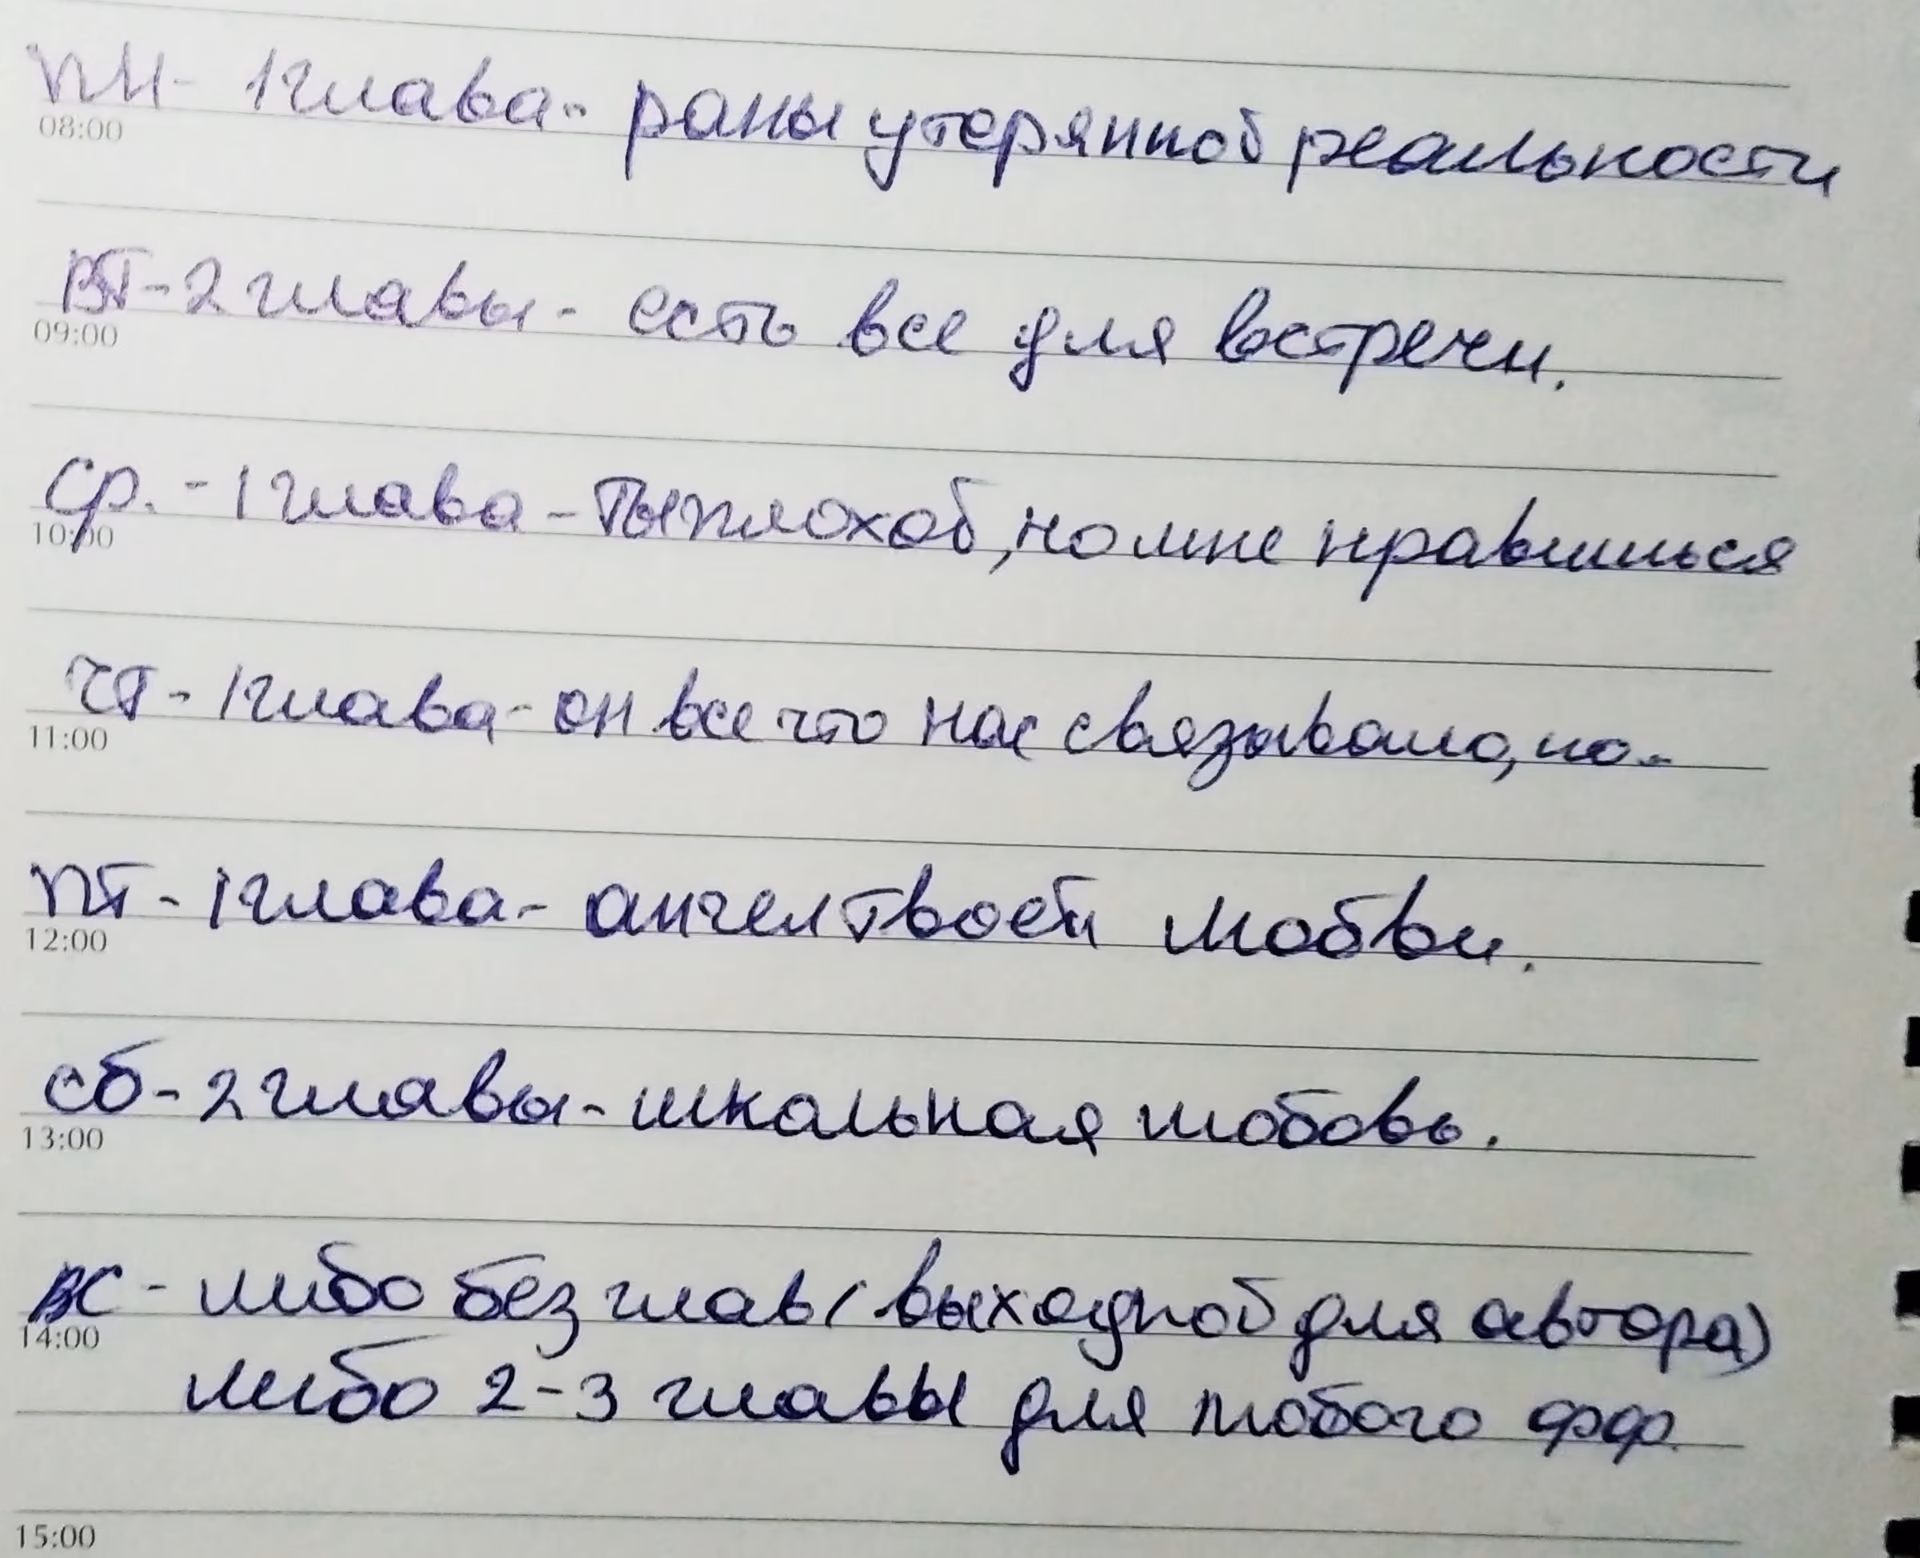 ПН- 1 глава- раны утерянной реальности
08:00
ВТ-2 главы- есть все для встречи.
09:00
Ср.-1 глава- Ты плохой, но мне нравишься
10:00
ЧТ- 1 глава- он все что нас связывало, но..
11:00
ПТ- 1 глава- ангел твоей любви.
12:00
Сб- 2 главы- школьная любовь.
13:00
ВС- либо без глав (выходной для автора)
14:00
либо 2-3 главы для любого фф.
15:00